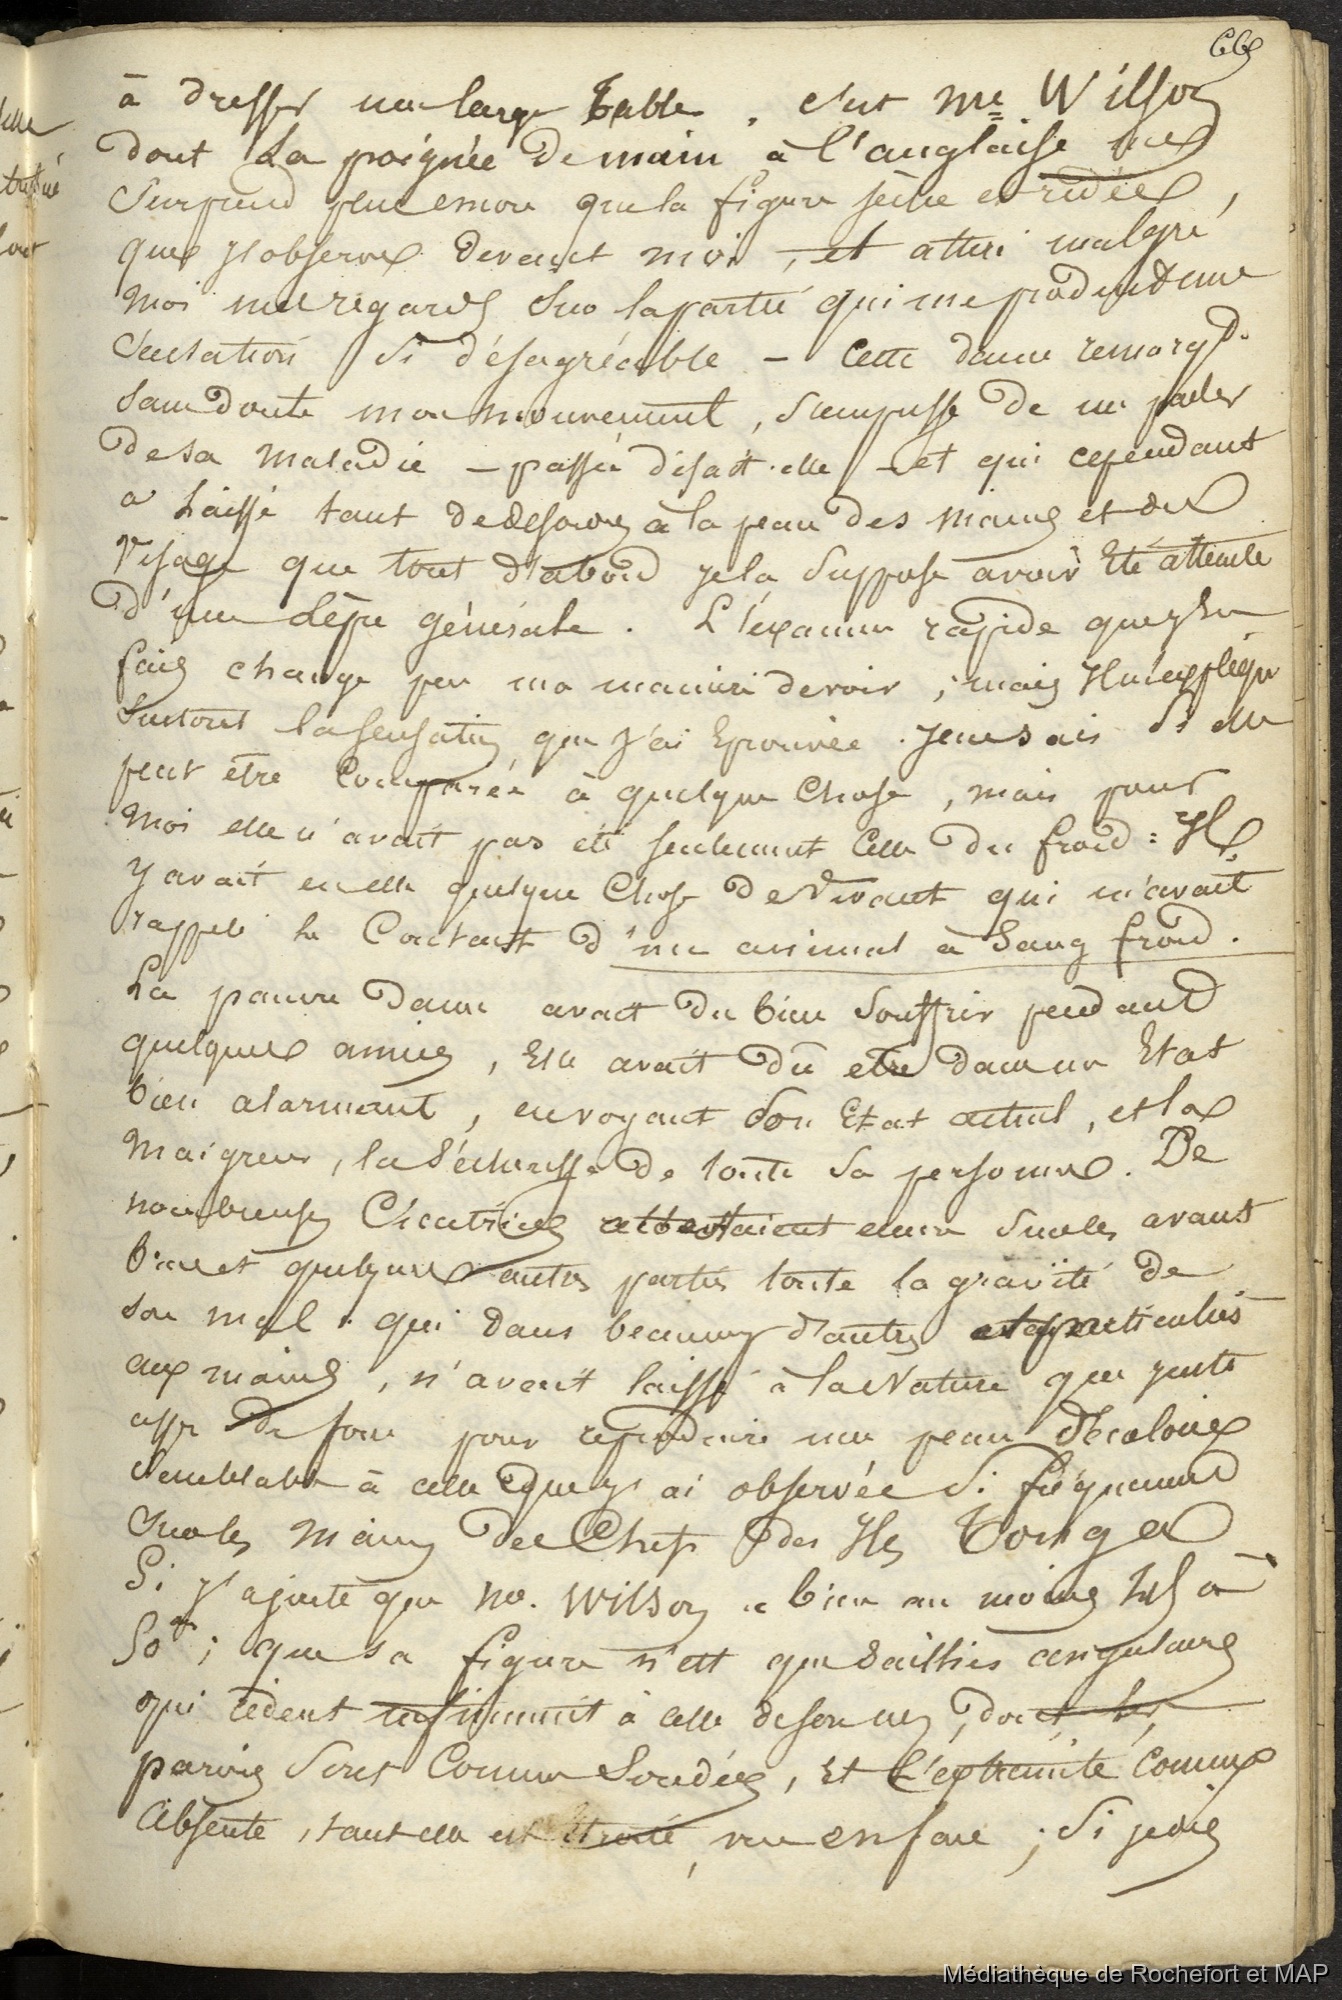 à dresser une large table. c'est Me Wilson
dont la poignée de main à l'anglaise me
surprend plus encore que la figure sèche et ridée,
que j'observe devant moi, et attire malgré
moi mes regards sur la partie qui me produit une
sensation si désagréable – Cette dame remarqt.
sans doute mon mouvement, s'empresse de me parler
de sa maladie – passée disait-elle – et qui cependant
a laissé tant de à la peau des mains et du
visage que tout d'abord je la suppose avoir été atteinte
d'une lèpre générale. L'examen rapide que j'en
fais change peu ma manière de voir; mais il m'explique
surtout la sensation que j'ai éprouvée. je ne sais si elle
peut être comparée à quelque chose, mais pour
moi elle n'avait pas été seulement celle du froid: Il
y avait en elle quelque chose de vivant qui m'avait
rappelé le contact d'un animal à sang froid.
La pauvre dame avait du bien souffrir pendant
quelques années, Elle avait dû être dans un Etat
bien alarmant, en voyant son Etat actuel, et la
maigreur, la sécheresse de toute sa personne. De
nombreuses cicatrices attestaient encore sur les avants
bras et quelques autres parties toute la gravité de
son mal. qui dans beaucoup d'autres particulier
aux mains, n'avait laissé à la Nature que juste
assez de force pour reproduire une peau décolorée
semblable à celle que j'ai observée si fréquemment
sur les mains des Chefs des Iles Tonga
Si j'ajoute que Me. Wilson a bien au moins 45 à
50 ; que sa figure n'est que saillies angulaires
qui cèdent infiniment à celle de son nez, dont les
parois sont comme soudées, et l'extrémité comme
absente, tant elle est étroite, vue en face; si je dis
Médiathèque de Rochefort et MAP